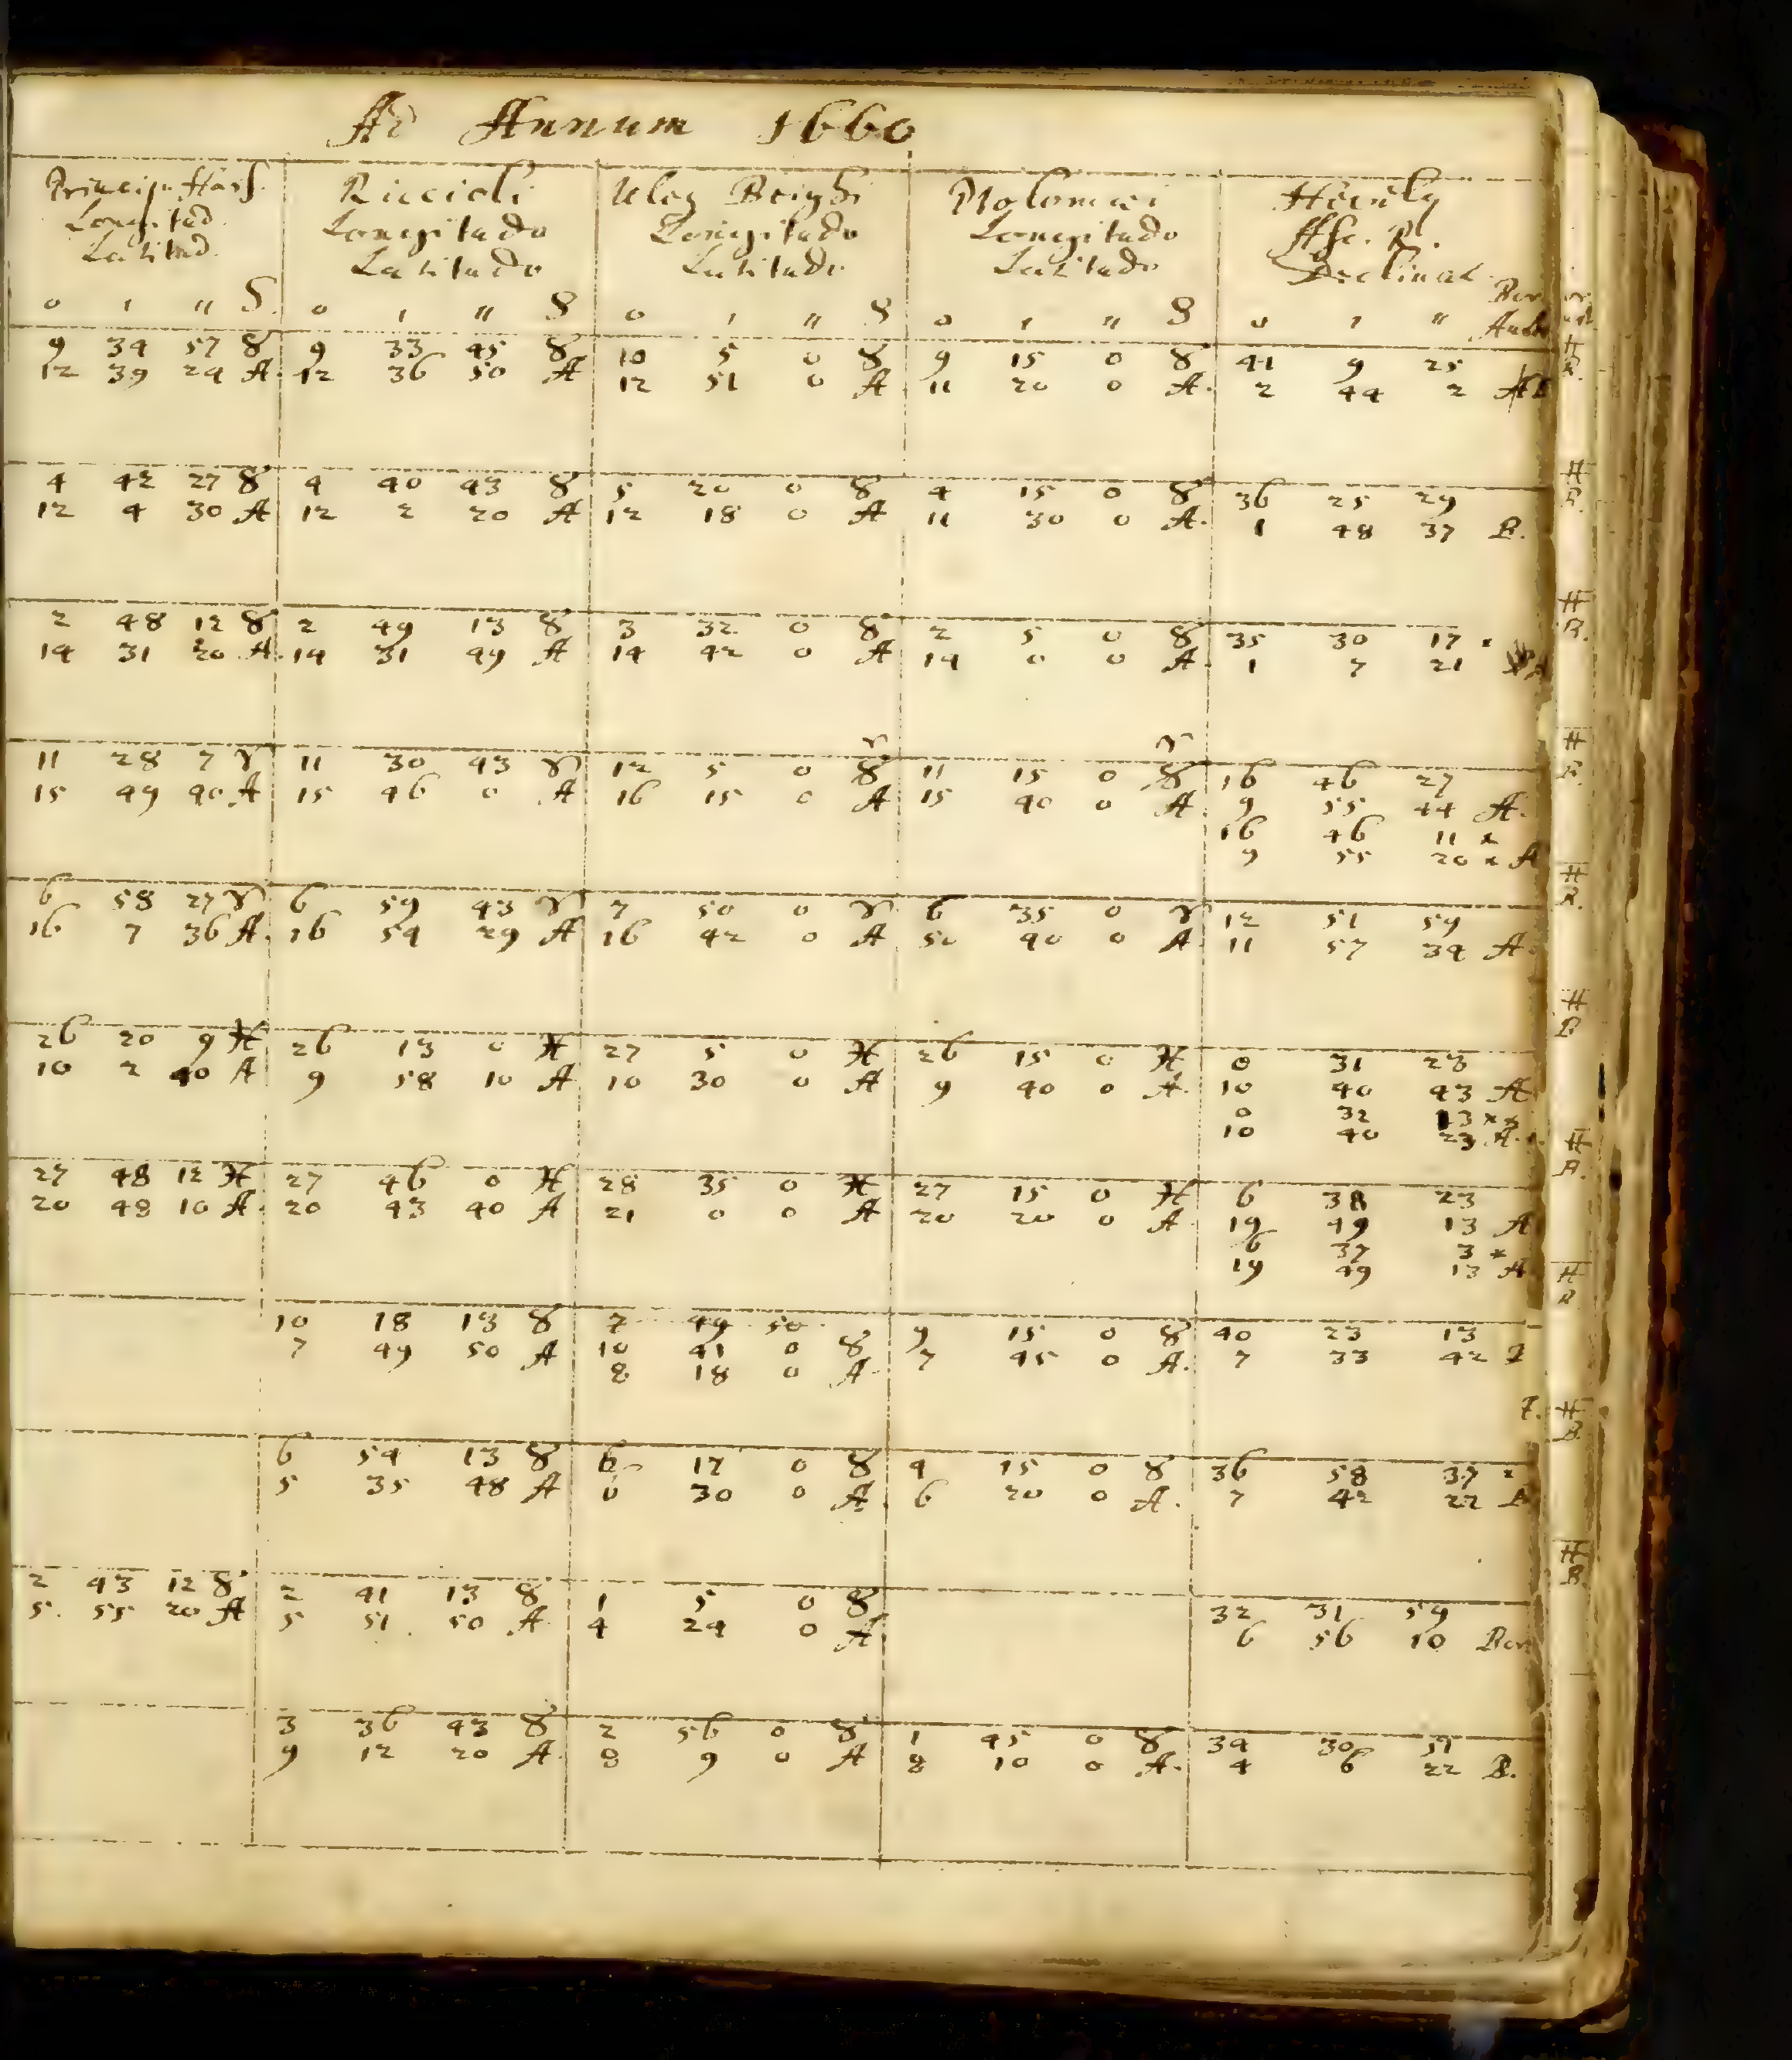 Ad Annum 1660
Princip. Hass. Riccioli Uleg Beighi Ptolomaei Hevely
Longitud. Longitudo Longitudo Longitudo Asc. R.
Latitud. Latitudo Latitudo Latitudo Declinat.
Bor
0 ' " S. 0 ' " S 0 ' " S 0 ' " S 0 ' " Aust
9 34 57 ♉ 9 33 45 ♉ 10 5 0 ♉ 9 15 0 ♉ 41 9 25
12 39 24 A 12 36 50 A 12 51 0 A 11 20 0 A. 2 44 2
4 42 27 ♉ 4 40 43 ♉ 5 20 0 ♉ 4 15 0 ♉ 36 25 29
12 4 30 A 12 2 20 A 12 18 0 A 11 30 0 A. 1 48 37 B.
2 48 12 ♉ 2 49 13 ♉ 3 32 0 ♉ 2 5 0 ♉ 35 30 17
14 31 20 A. 14 31 49 A 14 42 0 A 14 0 0 A 1 7 21
♈ ♈
11 28 7 ♈ 11 30 43 ♈ 12 5 0 ♉ 11 15 0 ♉ 16 46 27
15 49 40 A 15 46 0 A 16 15 0 A 15 40 0 A 9 55 44 A.
16 46 11 *
9 55 20 * A
6 58 27 ♈ 6 59 43 ♈ 7 50 0 ♈ 6 35 0 ♈ 12 51 59
16 7 36 A. 16 54 29 A 16 42 0 A 50 40 0 A 11 57 34 A.
26 20 9 ♓ 26 13 0 ♓ 27 5 0 ♓ 26 15 0 ♓ 0 31 28
10 2 40 A 9 58 10 A 10 30 0 A 9 40 0 A. 10 40 43 A
0 32 13 * *
10 40 23 A.
27 48 12 ♓ 27 46 0 ♓ 28 35 0 ♓ 27 15 0 ♓ 6 38 23
20 48 10 A. 20 43 40 A 21 0 0 A 20 20 0 A 19 49 13 A
6 37 3 *
19 49 13 A
10 18 13 ♉ 7 49 50 9 15 0 ♉ 40 23 13
7 49 50 A 10 41 0 ♉ 7 45 0 A. 7 33 42
8 18 0 A
6 54 13 ♉ 6 17 0 ♉ 4 15 0 ♉ 36 58 37
5 35 48 A 6 30 0 A. 6 20 0 A. 7 42 22
2 43 12 ♉ 2 41 13 ♉ 1 5 0 ♉ 32 31 59
5. 55 20 A 5 51 50 A 4 24 0 A 6 56 10 Bor
3 36 43 ♉ 2 56 0 ♉ 1 45 0 ♉ 34 30 51
9 12 20 A. 8 9 0 A 8 10 0 A. 4 6 22 B.